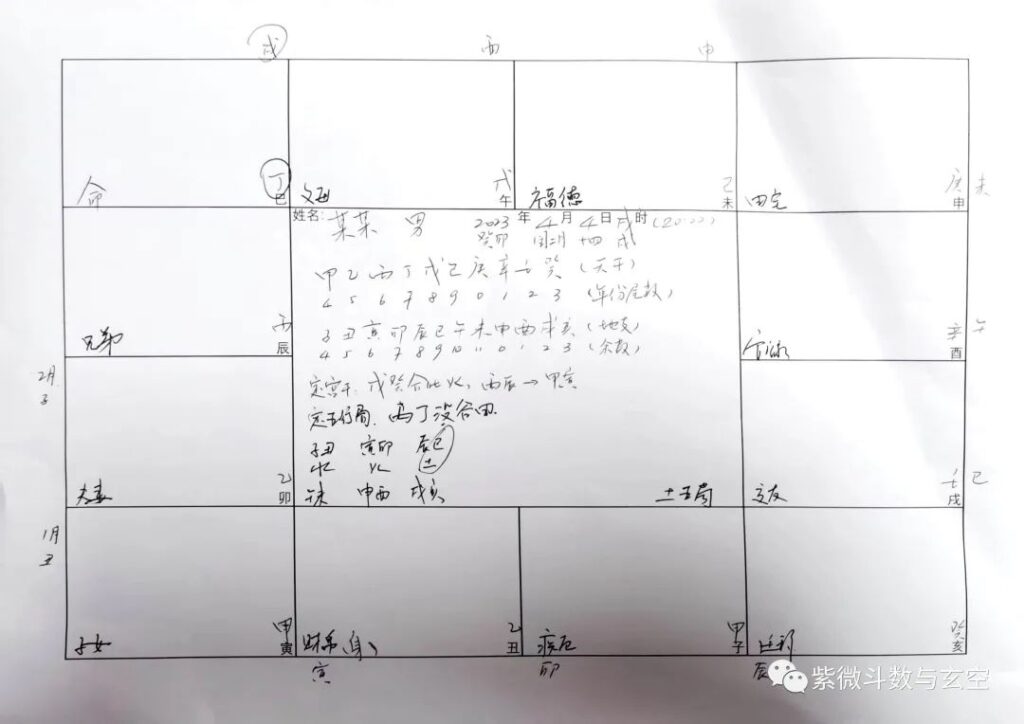 戌 酉 申
命 丁 巳
父母 戊 午
福德 己 未
田宅 庚 申 未
姓名: 某某 男 2023 年 4 月 4 日 戌 时 (20:22)
癸卯 闰二月 十四 戌
甲乙丙丁戊己庚辛壬癸 (天干)
4 5 6 7 8 9 0 1 2 3 (年份尾数)
子丑寅卯辰巳午未申酉戌亥 (地支)
4 5 6 7 8 9 10 11 0 1 2 3 (余数)
定宫干: 戊癸合化火, 丙辰→甲寅
定五行局:
子丑 寅卯 辰巳
水 火 土
午未 申酉 戌亥
土五局
兄弟 丙 辰
官禄 辛 酉 午
2月 子
夫妻 乙 卯
交友 壬 戌 巳
1月 丑
子女 甲 寅
财帛(身) 乙 丑
疾厄 甲 子
迁移 癸 亥
寅 卯 辰
紫微斗数与玄空